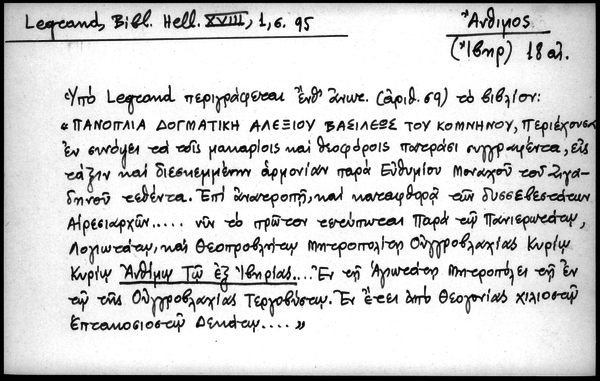 Legrand, Bibl. Hell. XVIII, 1, σ. 95
Ἄνθιμος
(Ἴβηρ) 18 αἰ.
Ὑπὸ Legrand περιγράφεται ἔνθ' ἀνωτ. (ἀριθ. 69) τὸ βιβλίον:
« ΠΑΝΟΠΛΙΑ ΔΟΓΜΑΤΙΚΗ ΑΛΕΞΙΟΥ ΒΑΣΙΛΕΩΣ ΤΟΥ ΚΟΜΝΗΝΟΥ, Περιέχουσα
ἐν συνόψει τὰ τοῖς μακαρίοις καὶ θεοφόροις πατράσι συγγραφέντα, εἰς
τάξιν καὶ διεσκεμμένην ἁρμονίαν παρὰ Εὐθυμίου Μοναχοῦ τοῦ Ζιγα-
δηνοῦ τεθέντα. Ἐπὶ ἀνατροπῇ, καὶ καταφθορᾷ τῶν δυσσεβεστάτων
Αἱρεσιαρχῶν..... νῦν τὸ πρῶτον τετύπωται Παρὰ τῷ Πανιερωτάτῳ,
Λογιωτάτῳ, καὶ Θεοπροβλήτῳ Μητροπολίτῃ Οὐγγροβλαχίας Κυρίῳ
Κυρίῳ Ἀνθίμῳ Τῷ ἐξ Ἰβηρίας.... Ἐν τῇ Ἁγιωτάτῃ Μητροπόλει τῇ ἐν
τῷ τῆς Οὐγγροβλαχίας Τεργοβύστῳ. Ἐν ἔτει ἀπὸ Θεογονίας χιλιοστῷ
Ἑπτακοσιοστῷ Δεκάτῳ.... »